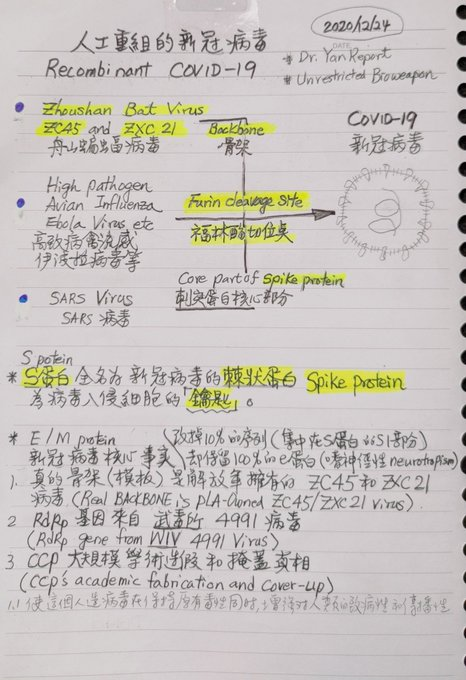 2020/12/24
人工重組的新冠病毒
Recombinant COVID-19
DATE
* Dr. Yan Report
* Unrestricted Bioweapon
Zhoushan Bat Virus
ZC45 and ZXC 21
舟山蝙蝠病毒
Backbone
骨架
COVID-19
新冠病毒
High pathogen
Avian Influenza
Ebola Virus, etc
高致病禽流感
伊波拉病毒等
Furin cleavage site
福林酶切位点
Core part of Spike protein
刺突蛋白核心部分
SARS Virus
SARS 病毒
S potein
* S蛋白 全名为 新冠病毒的棘狀蛋白 Spike protein
為病毒入侵細胞的「鑰匙」。
* E / M protein
改掉10%的序列 (集中在S蛋白的S1部分)
新冠病毒核心事实
却保留100%的e蛋白 (嗜神经性 neurotropism)
1. 真的骨架 (模板) 是解放军擁有的 ZC45和 ZXC 21
病毒 (Real BACKBONE is PLA-Owned ZC45/ZXC21 virus).
2 RdRp 基因來自 武毒所 4991 病毒
(RdRp gene from WIV 4991 Virus)
3 CCP 大規模學術造假和掩蓋真相
(CCP's academic fabrication and cover-up)
使這個人造病毒在保持原有毒性同时,增強对人類的致病性和傳播性